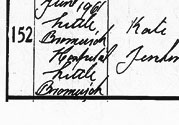 June 1961
152
Little, Kate
Bromwich
Hospital Jenkin
Little
Bromwich